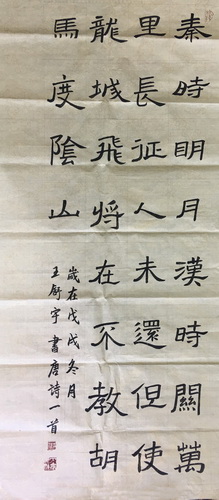 秦時明月漢時關萬
里長征人未還但使
龍城飛將在不教胡
馬度陰山
歲在戊戌冬月
王舒宇書唐詩一首